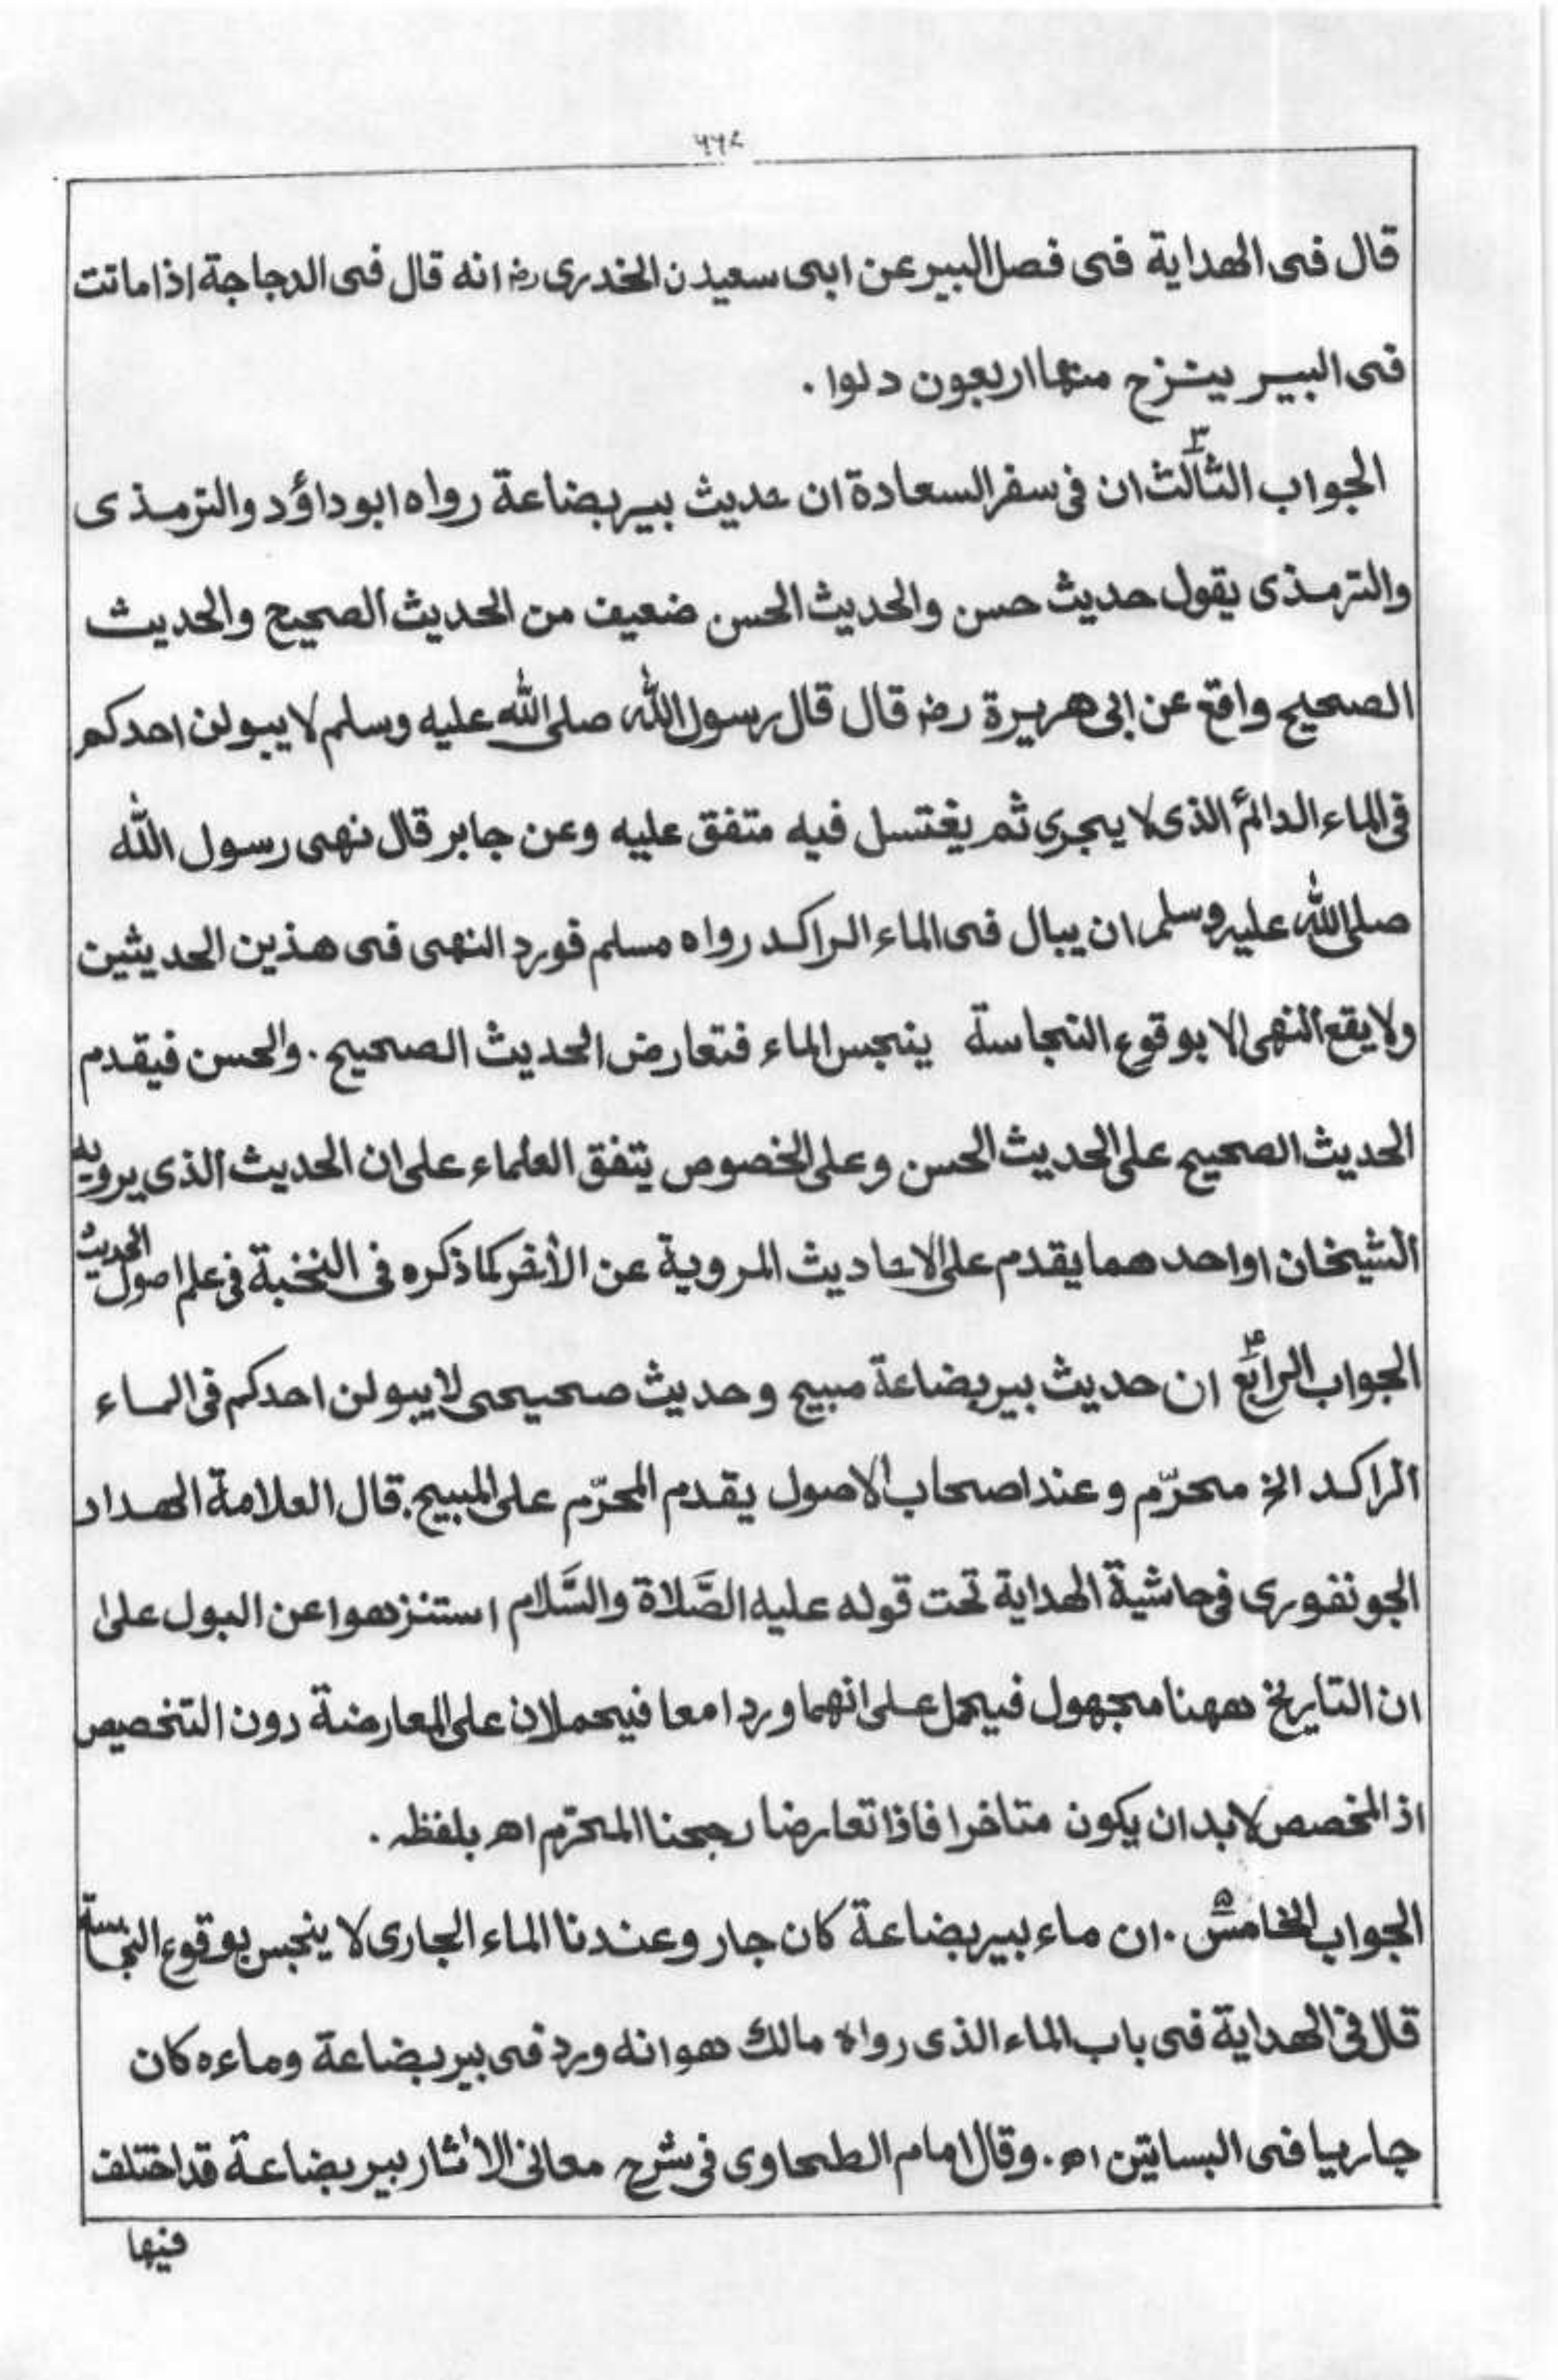 قال فى الهداية فى فصل البير عن ابى سعيدن الخدرى رض انه قال فى الدجاجة اذا ماتت
فى البير ينزح منها اربعون دلوا .
الجواب الثالث ٣ ان فى سفر السعادة ان حديث بير بضاعة رواه ابو داؤد والترمذى
والترمذى يقول حديث حسن والحديث الحسن ضعيف من الحديث الصحيح والحديث
الصحيح واقع عن ابى هريرة رض قال قال رسول الله صلى الله عليه وسلم لا يبولن احدكم
فى الماء الدائم الذى لا يجرى ثم يغتسل فيه متفق عليه وعن جابر قال نهى رسول الله
صلى الله عليه وسلم ان يبال فى الماء الراكد رواه مسلم فورد النهى فى هذين الحديثين
ولا يقع النهى الا بوقوع النجاسة ينجس الماء فتعارض الحديث الصحيح . والحسن فيقدم
الحديث الصحيح على الحديث الحسن وعلى الخصوص يتفق العلماء على ان الحديث الذى يرويه
الشيخان او احدهما يقدم على الاحاديث المروية عن الأخر كما ذكره فى النخبة فى علم اصول الحديث
الجواب الرابع ۴ ان حديث بير بضاعة مبيح وحديث صحيحى لا يبولن احدكم فى الماء
الراكد الخ محرّم وعند اصحاب الاصول يقدم المحرّم على المبيح . قال العلامة الهداد
الجونفورى فى حاشية الهداية تحت قوله عليه الصَّلاة والسَّلام استنزهوا عن البول على
ان التاريخ ههنا مجهول فيحمل على انهما وردا معا فيحملان على المعارضة دون التخصيص
اذ المخصص لابد ان يكون متاخرا فاذا تعارضا رجحنا المحرّم اه بلفظه .
الجواب الخامس ۵ . ان ماء بير بضاعة كان جار وعندنا الماء الجارى لا ينجس بوقوع النجاسة
قال فى الهداية فى باب الماء الذى رواه مالك هو انه ورد فى بير بضاعة وماءه كان
جاريا فى البساتين اه . وقال امام الطحاوى فى شرح معانى الاثار بير بضاعة قد اختلف
فيها